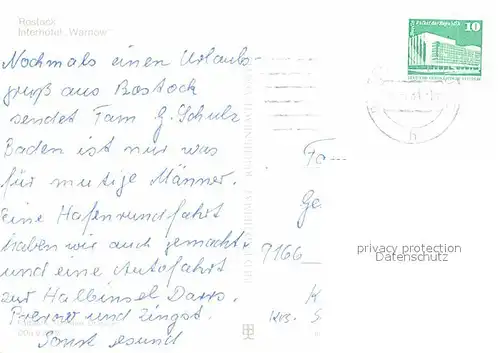 Rostock
Interhotel „Warnow"
Nochmals einen Urlaubs-
gruß aus Rostock
sendet Fam G. Schulz
Baden ist nur was
für mutige Männer.
Eine Hafenrundfahrt
haben wir auch gemacht
und eine Autofahrt
zur Halbinsel Darss.
Prerow und Zingst.
Sonst gesund
10
Fa
Ge
9166
K
Krs. S
privacy protection
Datenschutz